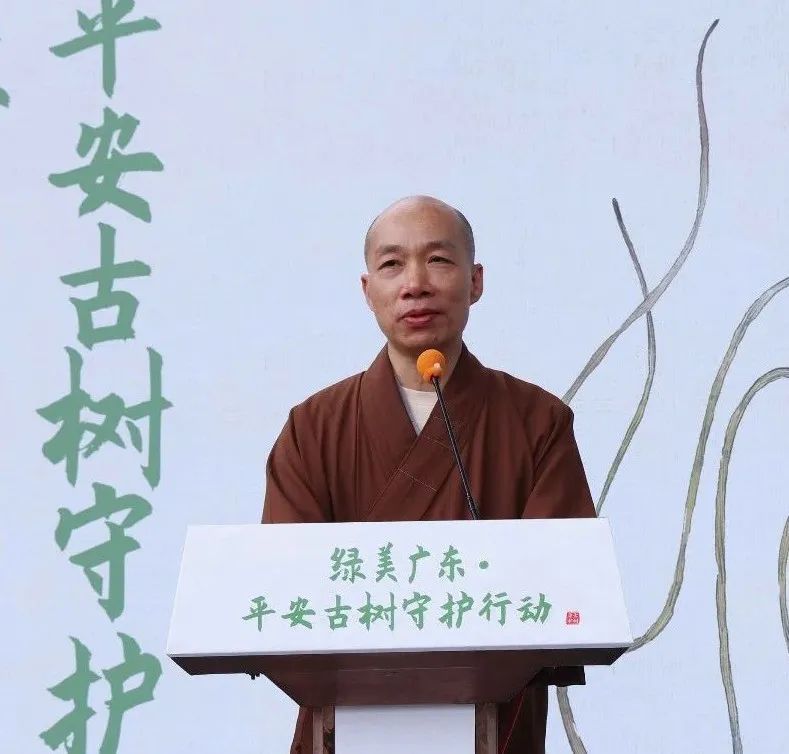 平安古树守护
绿美广东·
平安古树守护行动